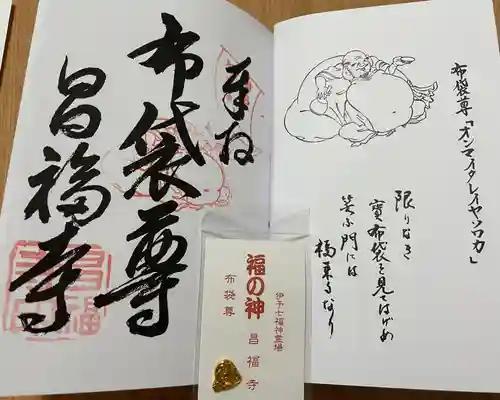 奉拝
布袋尊
昌福寺
布袋尊「オンマイタレイヤソワカ」
限りなき
寳布袋を見てはげめ
笑ふ門には
福来るなり
伊予七福神霊場
福の神 昌福寺
布袋尊